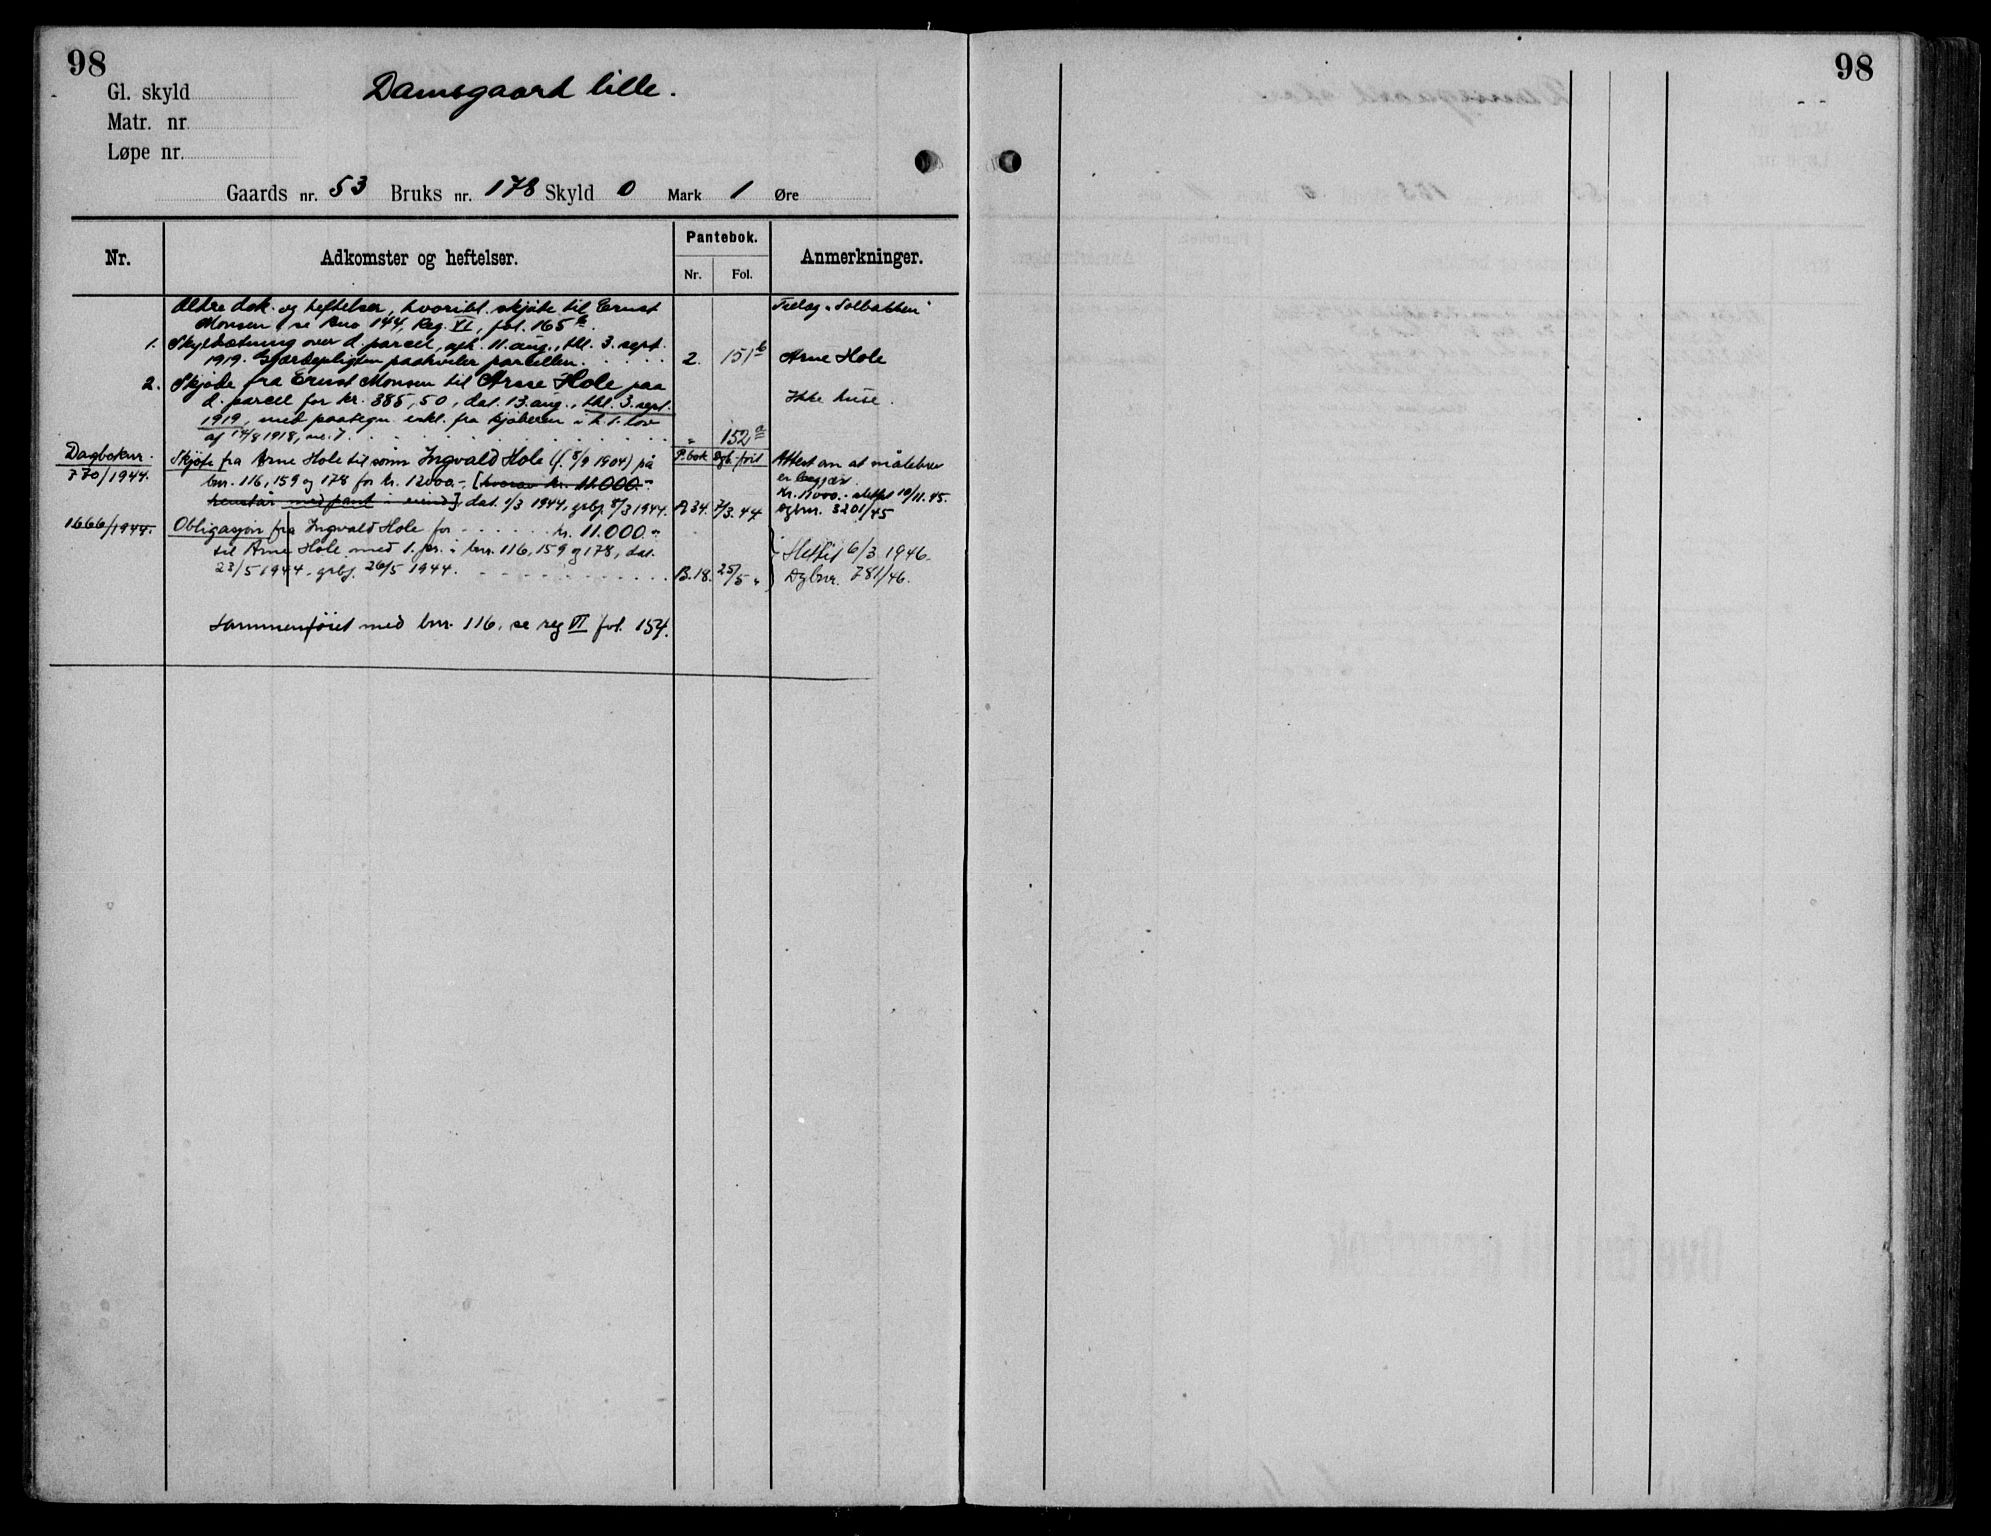 98
98
Gl. skyld
Damsgaard lille.
Matr. nr
Løpe nr.
Gaards nr. 53 Bruks nr. 178 Skyld 0 Mark 1 Øre
Nr. Adkomster og heftelser. Pantebok. Anmerkninger.
Nr. Fol.
Ældre dok. og heftelser, hvoribl. skjøte til Ernst
Tillæg "Solbakken"
Monsen se bno 144, Reg. VI, fol. 165 b.
1. Skyldsætning over d. parcel, afh. 11. aug., tbl. 3. sept.
1919. Gjærdepligten paahviler parcellen. 2. 151 b Arne Hole
2. Skjøte fra Ernst Monsen til Arne Hole paa
d. parcel for kr. 385,50, dat. 13. aug., tbl. 3. sept. Ikke huse.
1919, med paategn. erkl. fra kjøberen i h. t. lov
af 14/8 1918, nr. 7 " 152 a
Dagboknr. Skjøte fra Arne Hole til sønn Ingvald Hole (f. 8/9 1904) på P.bok Dgb.ført Attest om at målebrev
770/1944. bnr. 116, 159 og 178 for kr. 12000.- [hvorav kr. 11.000.- er begjært.
henstår med pant i eiend.] dat. 1/3 1944, grbf. 8/3 1944. A 34. 7/3. 44 Kr. 11000.- slettet 10/11. 45.
Dgbnr. 3201/45
1666/1944. Obligasjon fra Ingvald Hole for kr. 11.000.-
til Arne Hole med 1. pr. i bnr. 116, 159 og 178, dat. Slettet 6/3 1946.
23/5 1944, grbf. 26/5 1944. B. 18. 25/5 " Dgbnr. 781/46.
Sammenføiet med bnr. 116, se reg VI fol. 154.